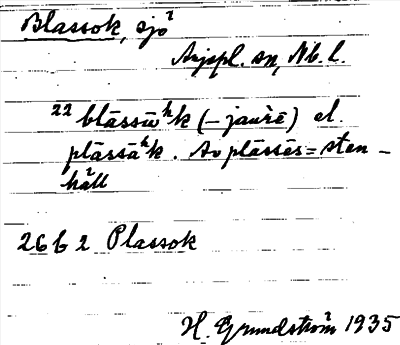 Blassok, sjö²
Arjepl. sn, Nb. l.
22 blāssūʰk (-jaurē) el.
plāssāʰk. Av plāssēs = sten-
häll
26 b 2 Plassok
H. Grundström 1935